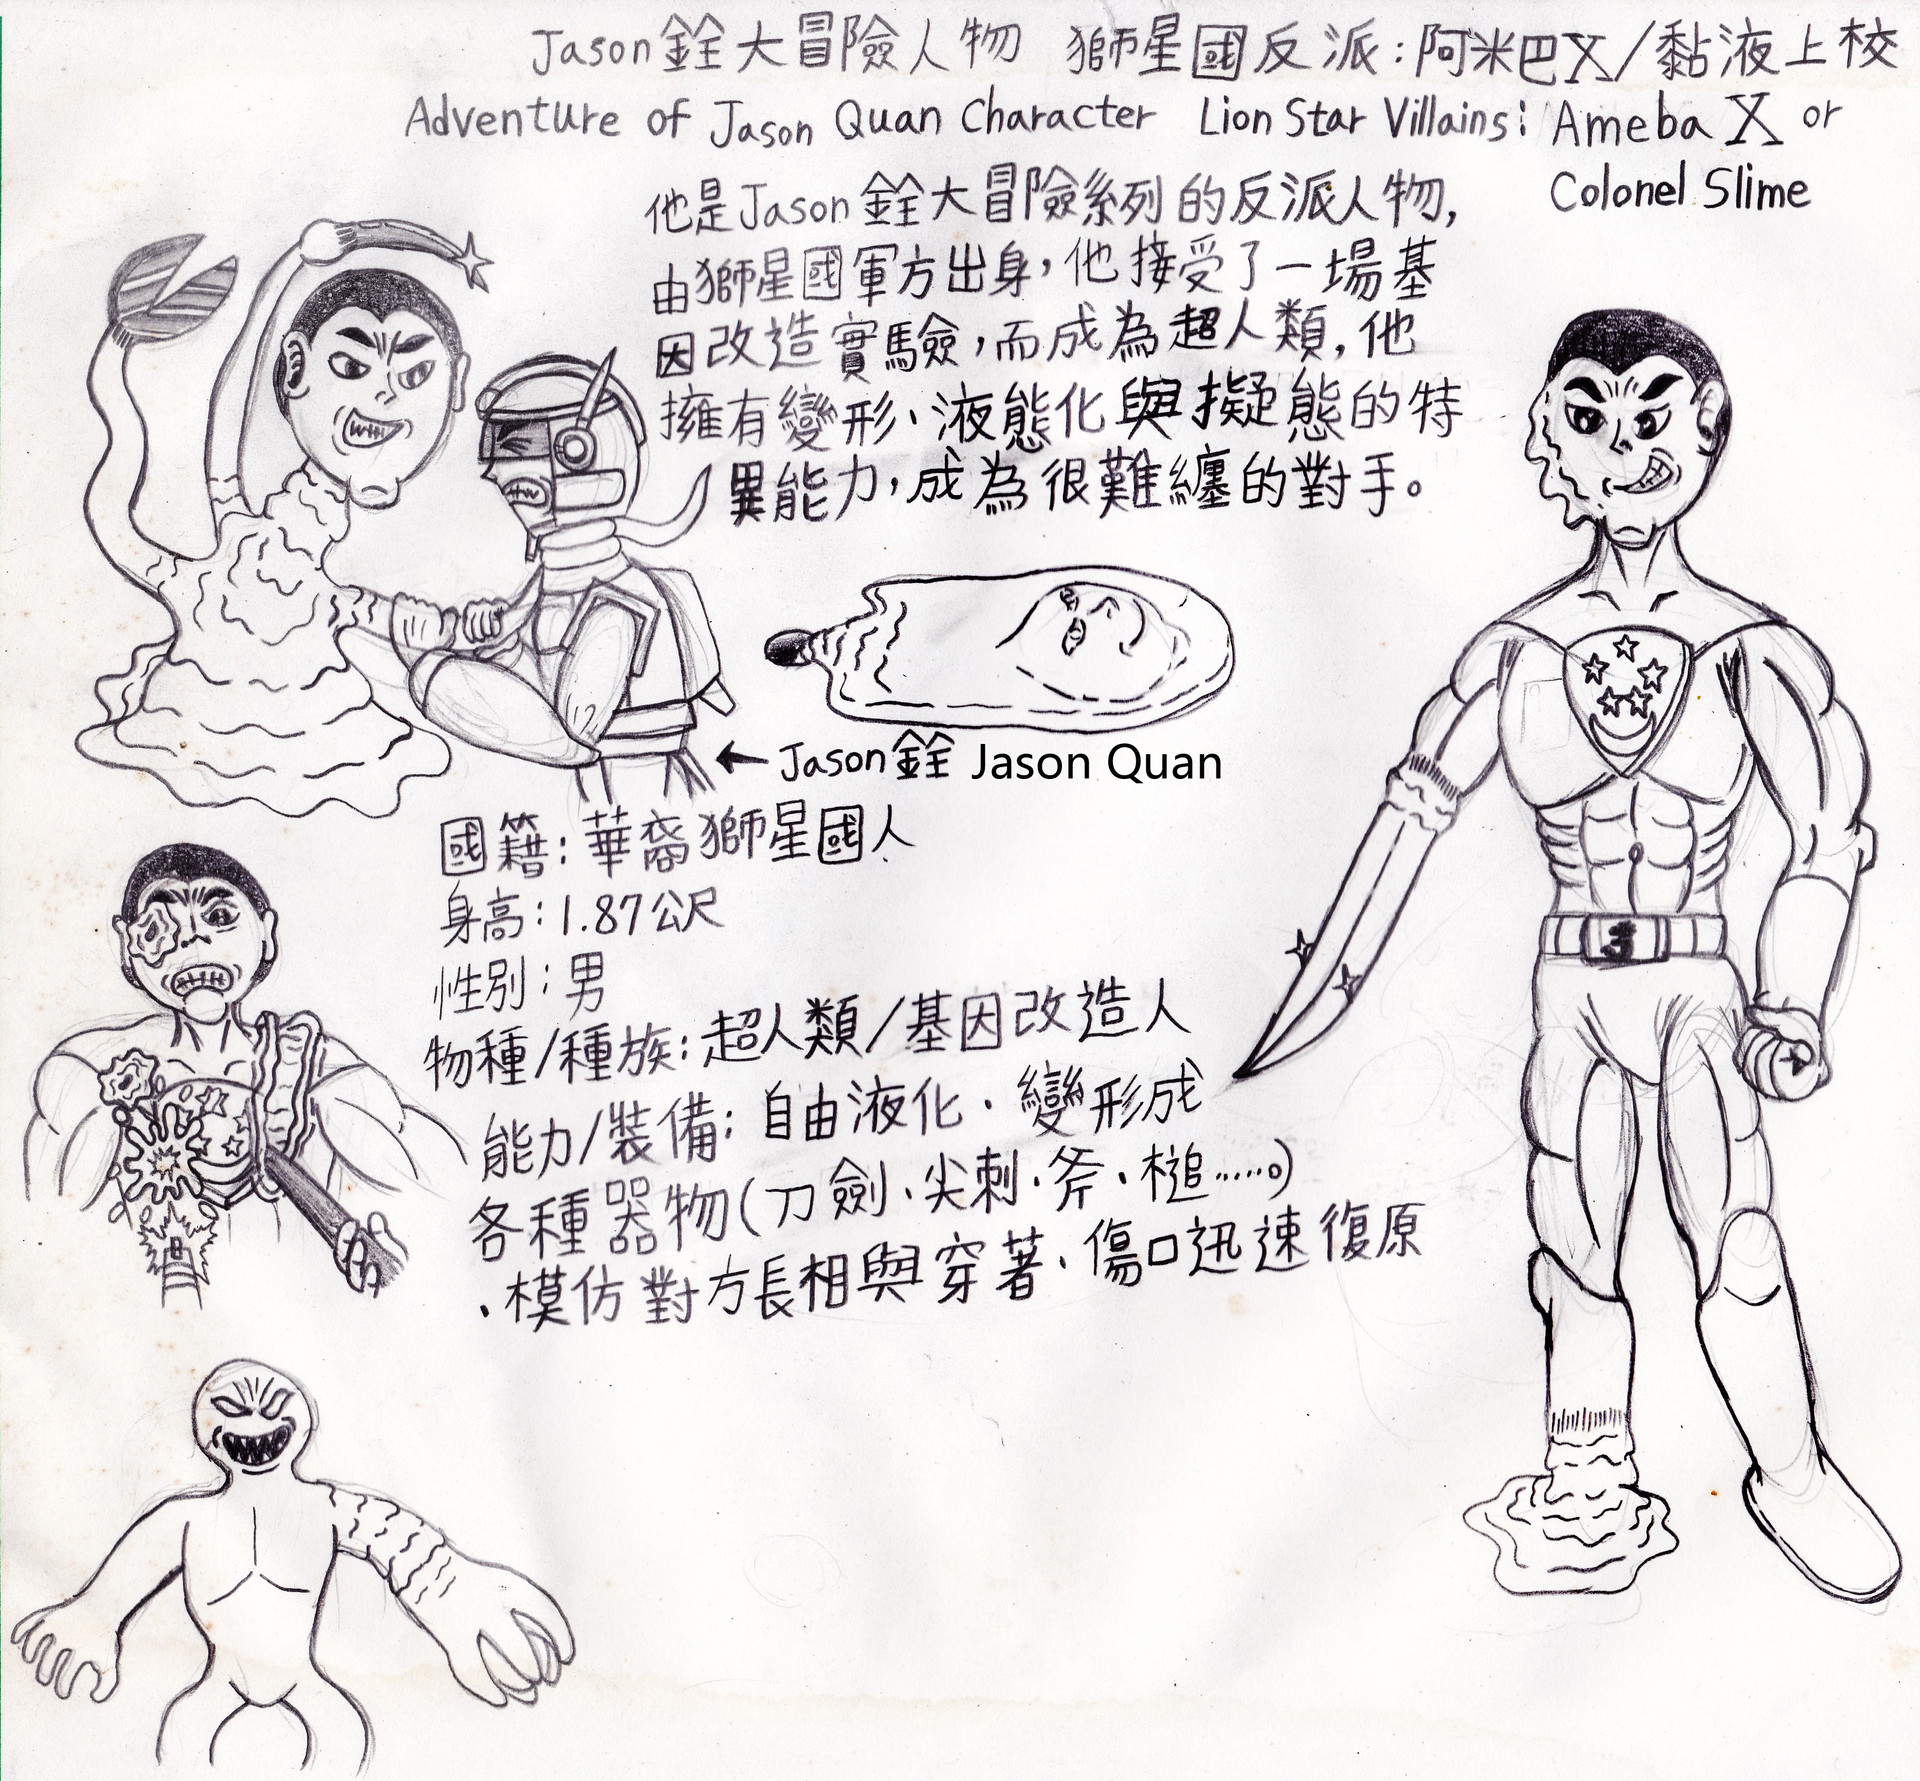 Jason銓大冒險人物 獅星國反派:阿米巴X/黏液上校
Adventure of Jason Quan Character Lion Star Villains: Ameba X or
Colonel Slime
他是Jason銓大冒險系列的反派人物,
由獅星國軍方出身,他接受了一場基
因改造實驗,而成為超人類,他
擁有變形、液態化與擬態的特
異能力,成為很難纏的對手。
←Jason銓 Jason Quan
國籍:華裔獅星國人
身高:1.87公尺
性別:男
物種/種族:超人類/基因改造人
能力/裝備:自由液化、變形成
各種器物(刀劍、尖刺、斧、槌……。)
、模仿對方長相與穿著、傷口迅速復原